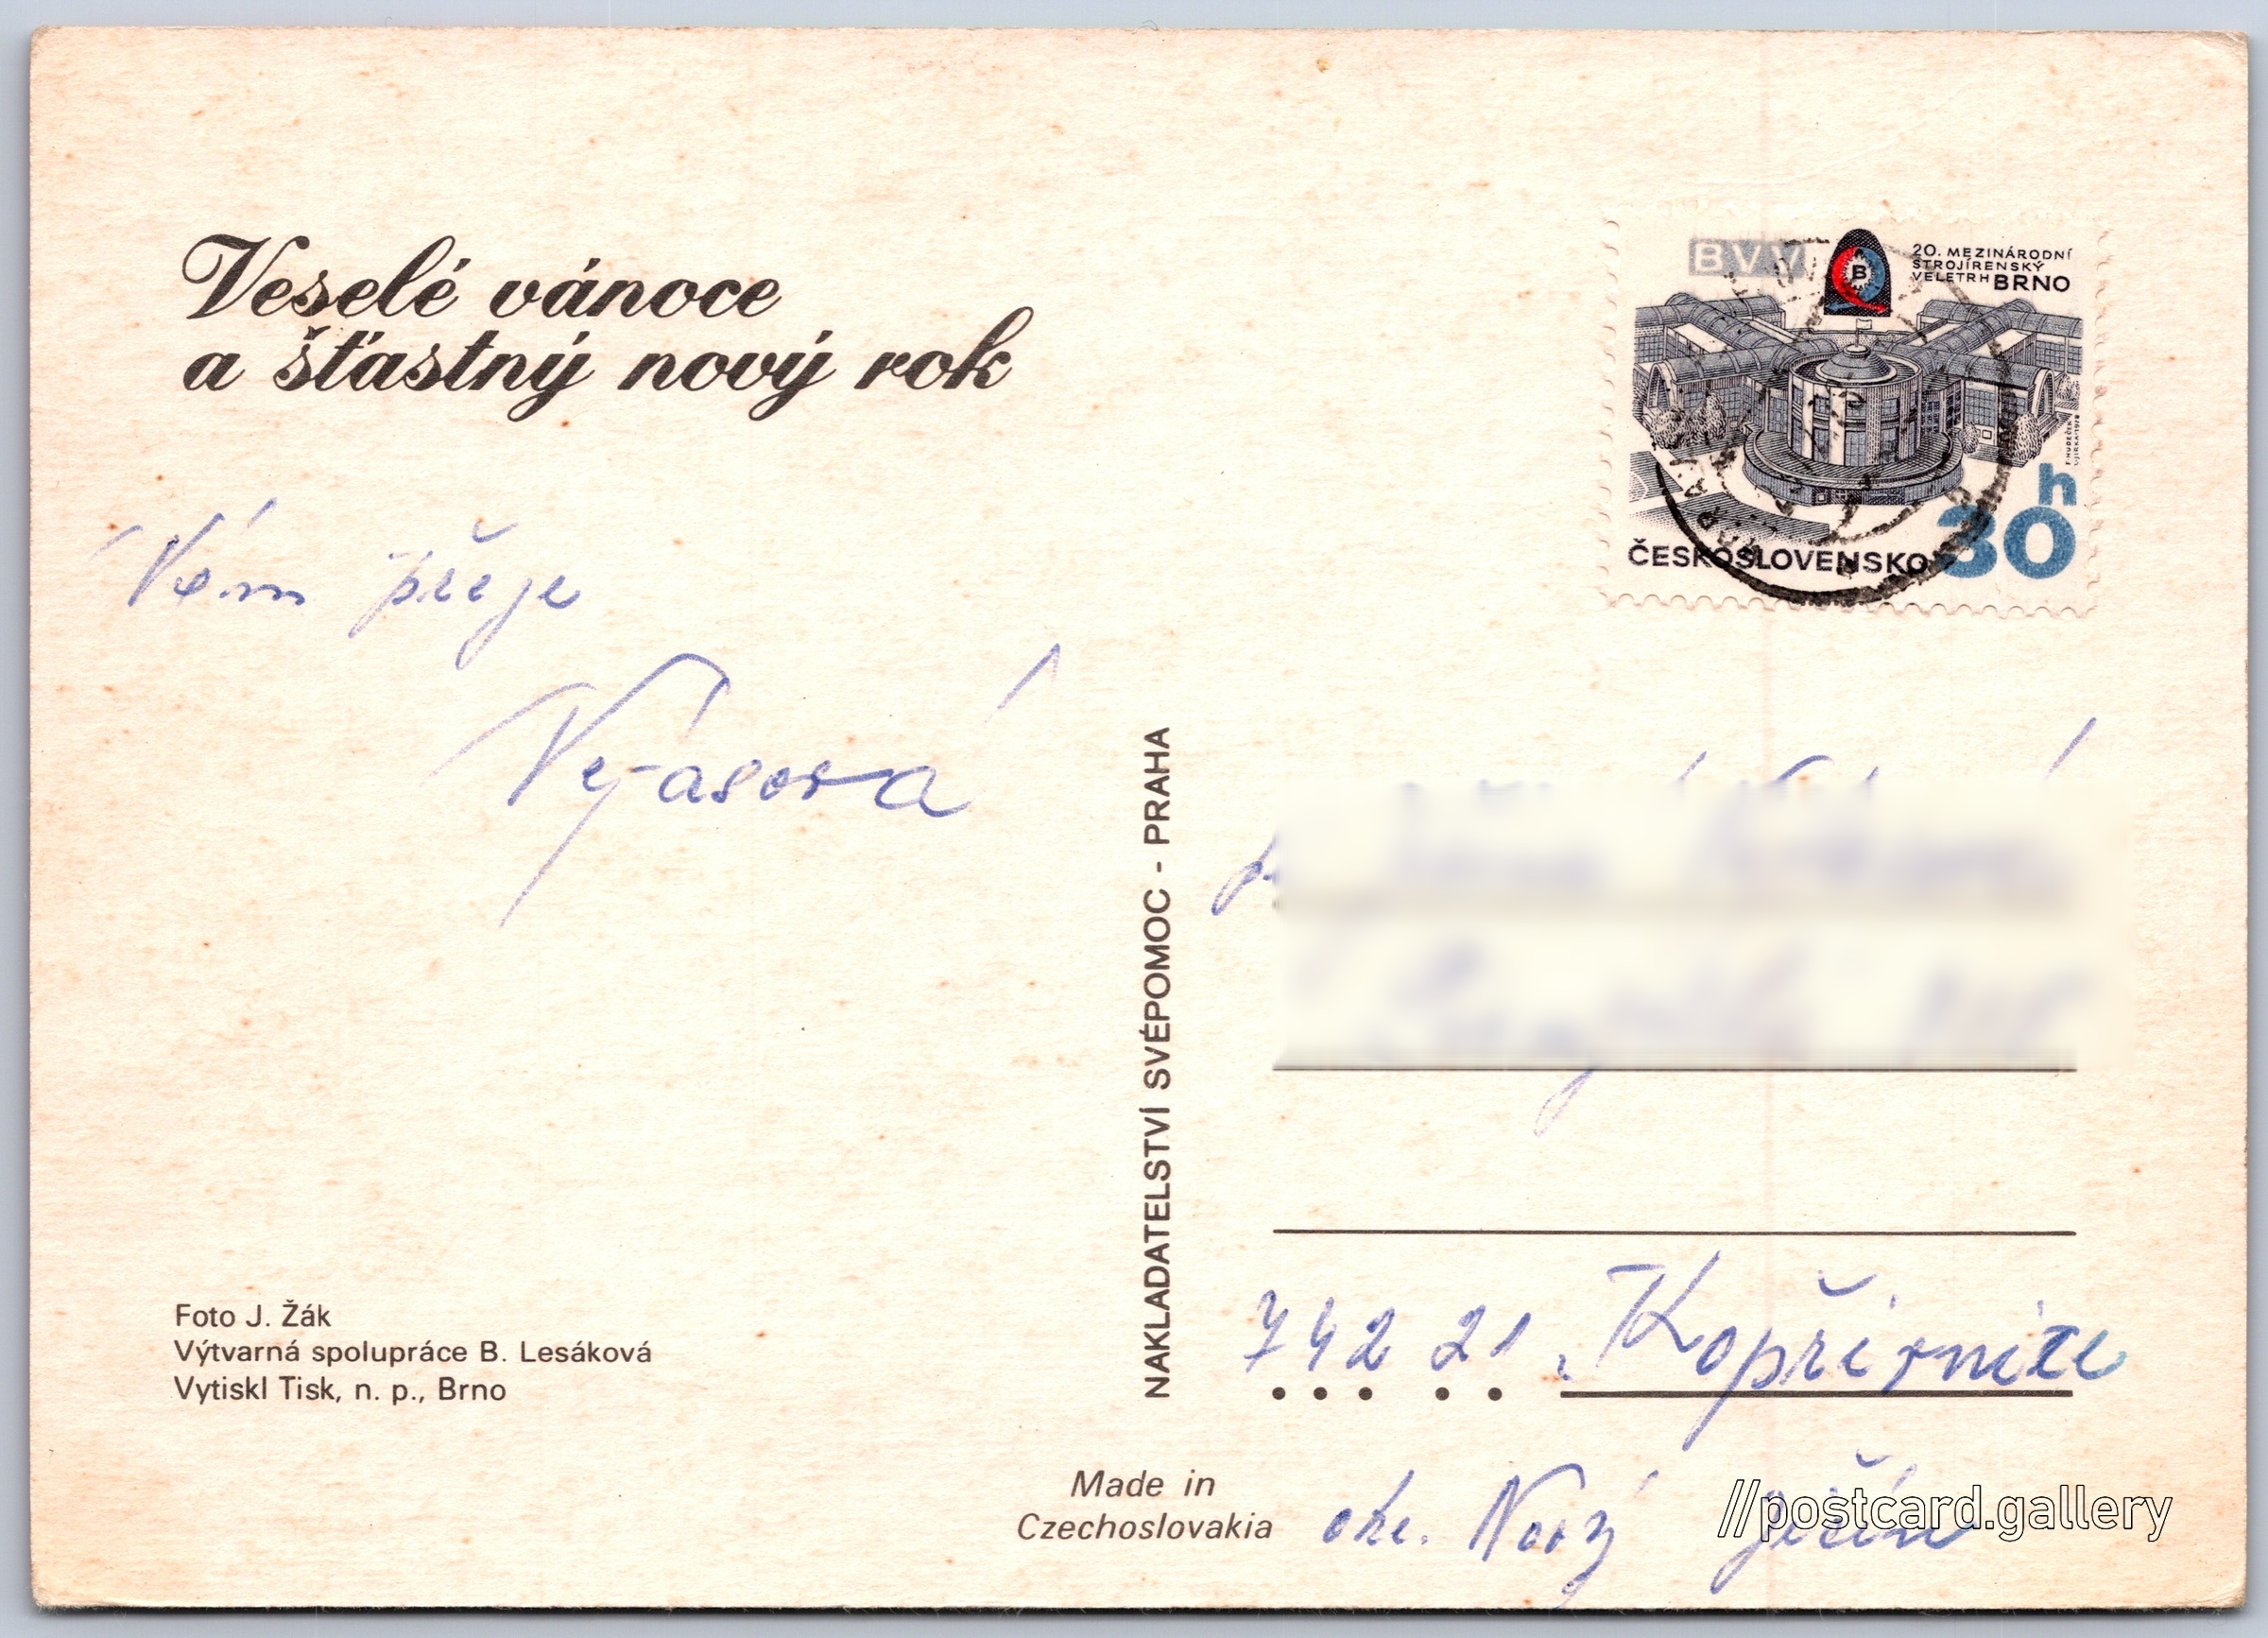 Veselé vánoce
a šťastný nový rok
BVV
B
20. MEZINÁRODNÍ
STROJÍRENSKÝ
VELETRH BRNO
h
30
ČESKOSLOVENSKO
Vám přeje
NAKLADATELSTVÍ SVÉPOMOC - PRAHA
742 21 Kopřivnice
okr. Nový Jičín
Foto J. Žák
Výtvarná spolupráce B. Lesáková
Vytiskl Tisk, n. p., Brno
Made in
Czechoslovakia
//postcard.gallery